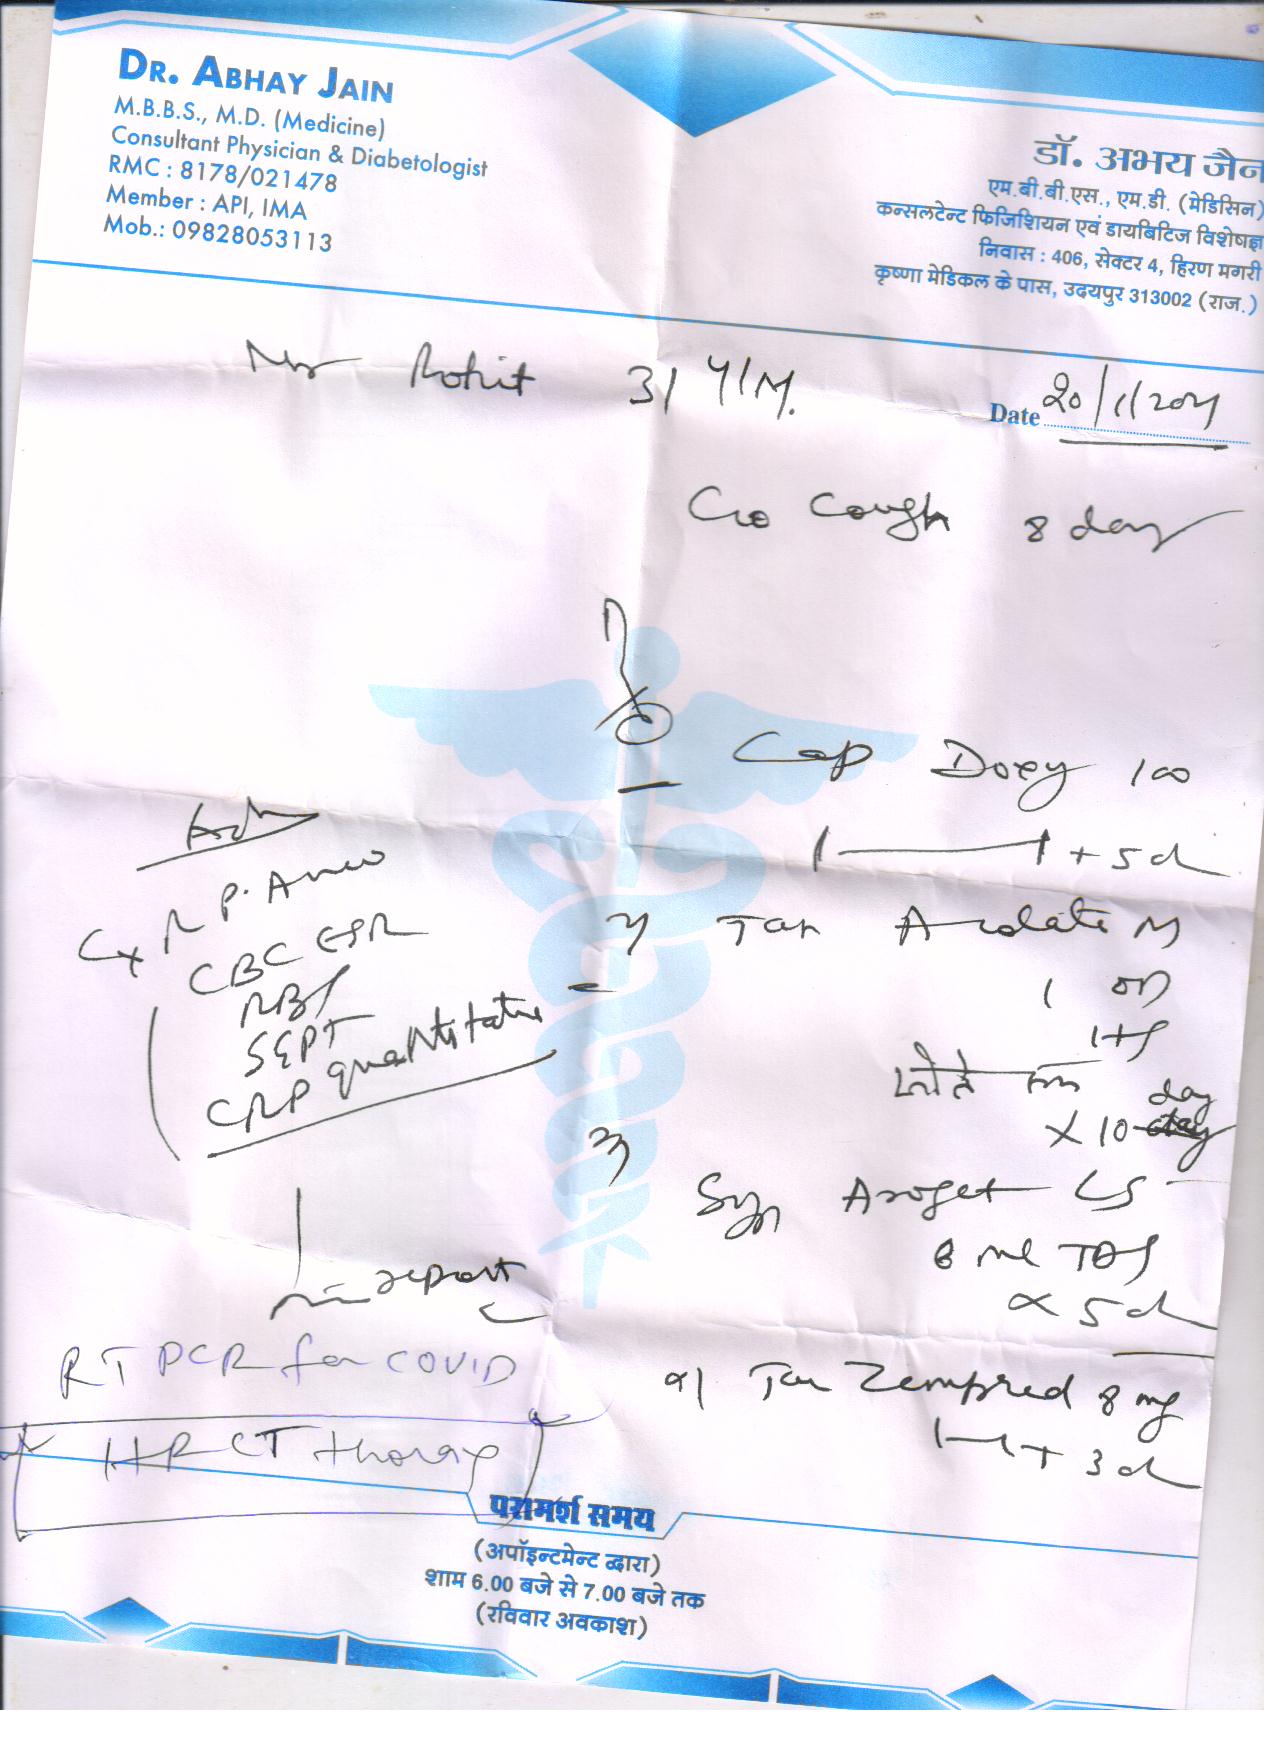 DR. ABHAY JAIN
M.B.B.S., M.D. (Medicine)
Consultant Physician & Diabetologist
RMC : 8178/021478
Member : API, IMA
Mob.: 09828053113
डॉ. अभय जैन
एम.बी.बी.एस., एम.डी. (मेडिसिन)
कन्सलटेन्ट फिजिशियन एवं डायबिटिज विशेषज्ञ
निवास : 406, सेक्टर 4, हिरण मगरी
कृष्णा मेडिकल के पास, उदयपुर 313002 (राज.)
Mr Rohit 31 Y/M.
Date 20/1/2021
C/o Cough 8 day
Cap Doxy 100
1 — 1 + 5 d
2) Tab M
1 OD
day
x 10
3) Syp LS
8 ml TDS
x 5 d
4) Tab Zempred 8 mg
1—1 + 3 d
Adv
CxR P.A view
CBC ESR
RBS
SGPT
CRP quantitative
report
RTPCR for COVID
HRCT thorax
परामर्श समय
(अपॉइन्टमेन्ट द्वारा)
शाम 6.00 बजे से 7.00 बजे तक
(रविवार अवकाश)